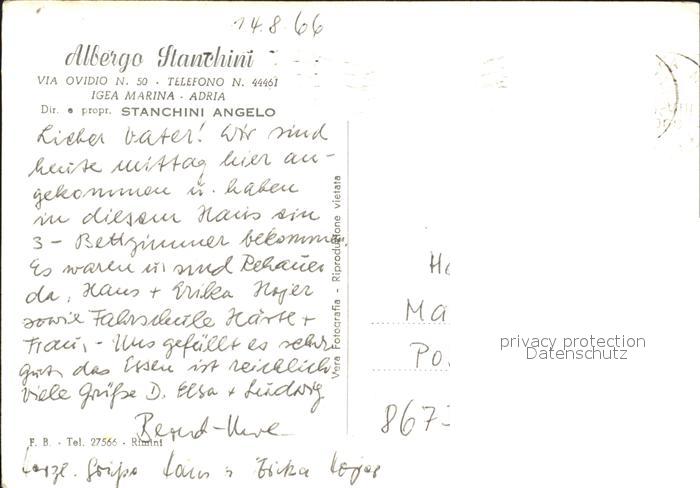 14.8.66
Albergo Stanchini
VIA OVIDIO N. 50 - TELEFONO N. 44461
IGEA MARINA - ADRIA
Dir. e propr. STANCHINI ANGELO
Lieber Vater! Wir sind
heute mittag hier an-
gekommen u. haben
in diesem Haus ein
3-Bettzimmer bekommen.
Es waren u. sind Rehauer
da, Hans + Erika Hojer
sowie Fahrschule +
Frau. - Uns gefällt es sehr
gut, das Essen ist reichlich
viele Grüße D. Elsa + Ludwig
Bernd-Uwe
F. B. - Tel. 27566 - Rimini
Herzl. Grüße Hans u Erika Hojer
Vera Fotografia - Riproduzione vietata
Ma
Po
867
privacy protection
Datenschutz